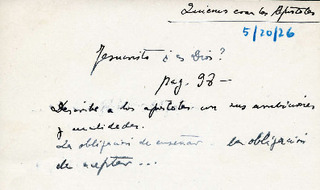 Quienes eran los Apóstoles
5/20/26
Jesucristo ¿es Dios?
pag. 93 —
Describe a los apóstoles con sus ambiciones
y cualidades.
La obligación de enseñar la obligación
de aceptar ...